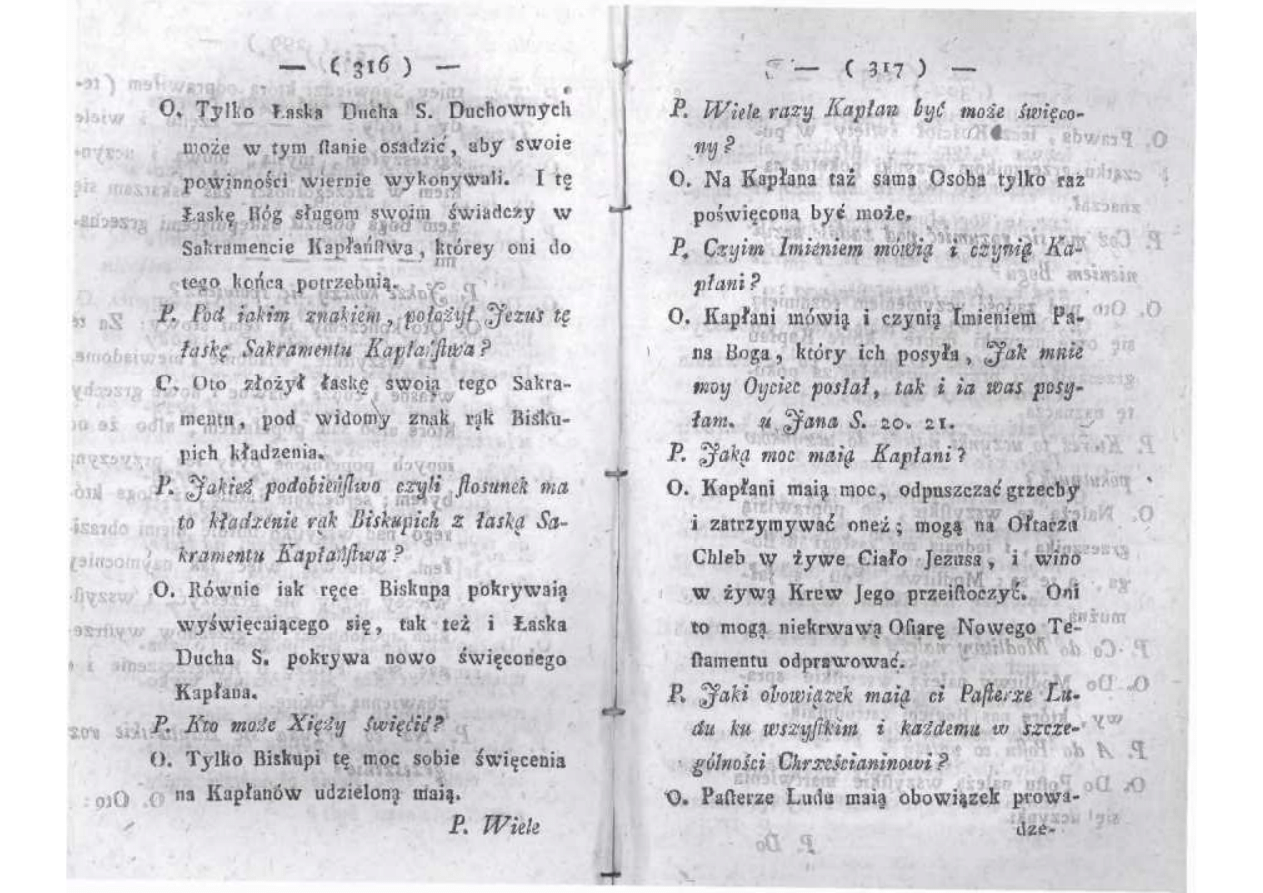 — ( 316 ) —
O. Tylko Łaska Ducha S. Duchownych
może w tym ſtanie osadzić, aby swoie
powinności wiernie wykonywali. I tę
Łaskę Bóg sługom swoim świadczy w
Sakramencie Kapłańſtwa, którey oni do
tego końca potrzebuią.
P. Pod iakim znakiem, położył Jezus tę
łaskę Sakramentu Kapłańſtwa?
O. Oto złożył łaskę swoią tego Sakra-
mentu, pod widomy znak rąk Bisku-
pich kładzenia.
P. Jakież podobieńſtwo czyli ſtosunek ma
to kładzenie rąk Biskupich z łaską Sa-
kramentu Kapłańſtwa?
O. Równie iak ręce Biskupa pokrywaią
wyświęcaiącego się, tak też i Łaska
Ducha S. pokrywa nowo święconego
Kapłana.
P. Kto może Xięży święcić?
O. Tylko Biskupi tę moc sobie święcenia
na Kapłanów udzieloną maią.
P. Wiele
— ( 317 ) —
P. Wiele razy Kapłan być może święco-
ny?
O. Na Kapłana taż sama Osoba tylko raz
poświęcona być może.
P. Czyim Imieniem mówią i czynią Ka-
płani?
O. Kapłani mówią i czynią Imieniem Pa-
na Boga, który ich posyła, Jak mnie
moy Oyciec posłał, tak i ia was posy-
łam. u Jana S. 20. 21.
P. Jaką moc maią Kapłani?
O. Kapłani maią moc, odpuszczać grzechy
i zatrzymywać oneż; mogą na Ołtarzu
Chleb w żywe Ciało Jezusa, i wino
w żywą Krew Jego przeiſtoczyć. Oni
to mogą niekrwawą Ofiarę Nowego Te-
ſtamentu odprawować.
P. Jaki obowiązek maią ci Paſterze Lu-
du ku wszyſtkim i każdemu w szcze-
gólności Chrześcianinowi?
O. Paſterze Ludu maią obowiązek prowa-
dze-